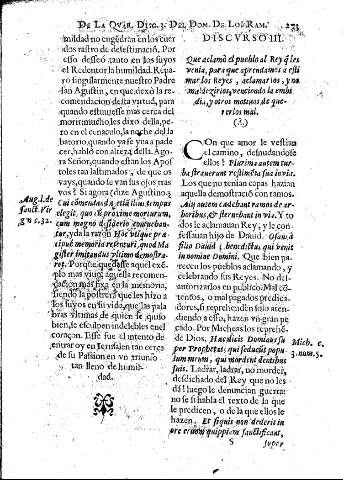 DE LA QVAR. DISC. 3. DEL DOM. DE LOS RAM.
273
mildad no engēdran en los cuer
dos rastro de desestimaciō. Por
esso desseó tanto en los suyos
el Redentor la humildad. Repa
ró singularmente nuestro Padre
san Agustin, en que, dexò la re-
comendacion desta virtud, para
quando estuuiesse mas cerca del
morir: mucho les dixo della, pe
ro en el cenaculo, la noche del la
batorio, quando vase ya a pade
cer, hablò con alteza della. Agora
Señor, quando estan los Apos
toles tan lastimados, de que os
vays, quando se van sus ojos tras
vos? Si agora (dize Agustino.)
Aug. l. de
sanct. Vir
g. n c. 32.
Cui comendanda etiā illud tempus
elegit, quo ei proximè moriturum,
cum magno desiderio concurreban-
tur, y da la razon. Hoc vtique præ
cipuè memoria retenturi, quod Ma
gister imitandus vltimo demostra-
ret. Porque que desse aquel exē-
plo mas viuo, aquella recomen-
dacion mas fixa en la memoria,
siendo la postrera que les hizo a
los suyos en su vida, que las pala
bras vltimas de quien se quiso
bien, se esculpen indelebles en el
coraçon. Este fue el intento de
entrar oy en Ierusalen tan cerca
de su Passion en vn triunfo
tan lleno de humil-
dad.
DISCVRSO III.
Que aclamò el pueblo al Rey que les
venia, para que aprendamos a esti
mar los Reyes, aclamarlos, y no
maldezirlos, venciendo la embi
dia, y otros motiuos de que-
rerlos mal.
(?.)
CON que amor le vestian
el camino, desnudandose
ellos? Plurima autem tur-
ba strauerunt vestimenta sua in via.
Los que no tenian capas hazian
aquella demostracìō con ramos.
Alij autem cædebant ramos de ar-
boribus, & sternebant in via. Y to
dos le aclamauan Rey, y le con-
fessauan hijo de Dauid. Osanna
filio Dauid, benedictus qui venit
in nomine Domini. Que bien pa-
recen los pueblos aclamando, y
celebrando sus Reyes. No des-
autorizarlos en publico. Mal cō-
tentos, o mal pagados predica-
dores, si reprehenden solo aten-
diendo a esso, hazen vn gran pe
cado. Por Micheas los reprehē-
de Dios. Hæc dicit Dominus su-
Mich. c.
3. num. 5.
per Prophetas, qui seducūt popu
lum meum, qui mordent dentibus
suis. Ladrar, ladrar, no morder,
desdichado del Rey que no les
da! luego le denuncian guerra:
no se si habla el texto de la que
le predicen, o de la que ellos le
hazen. Et si quis non dederit in
ore eorum quippiam sanctificant,
S
super